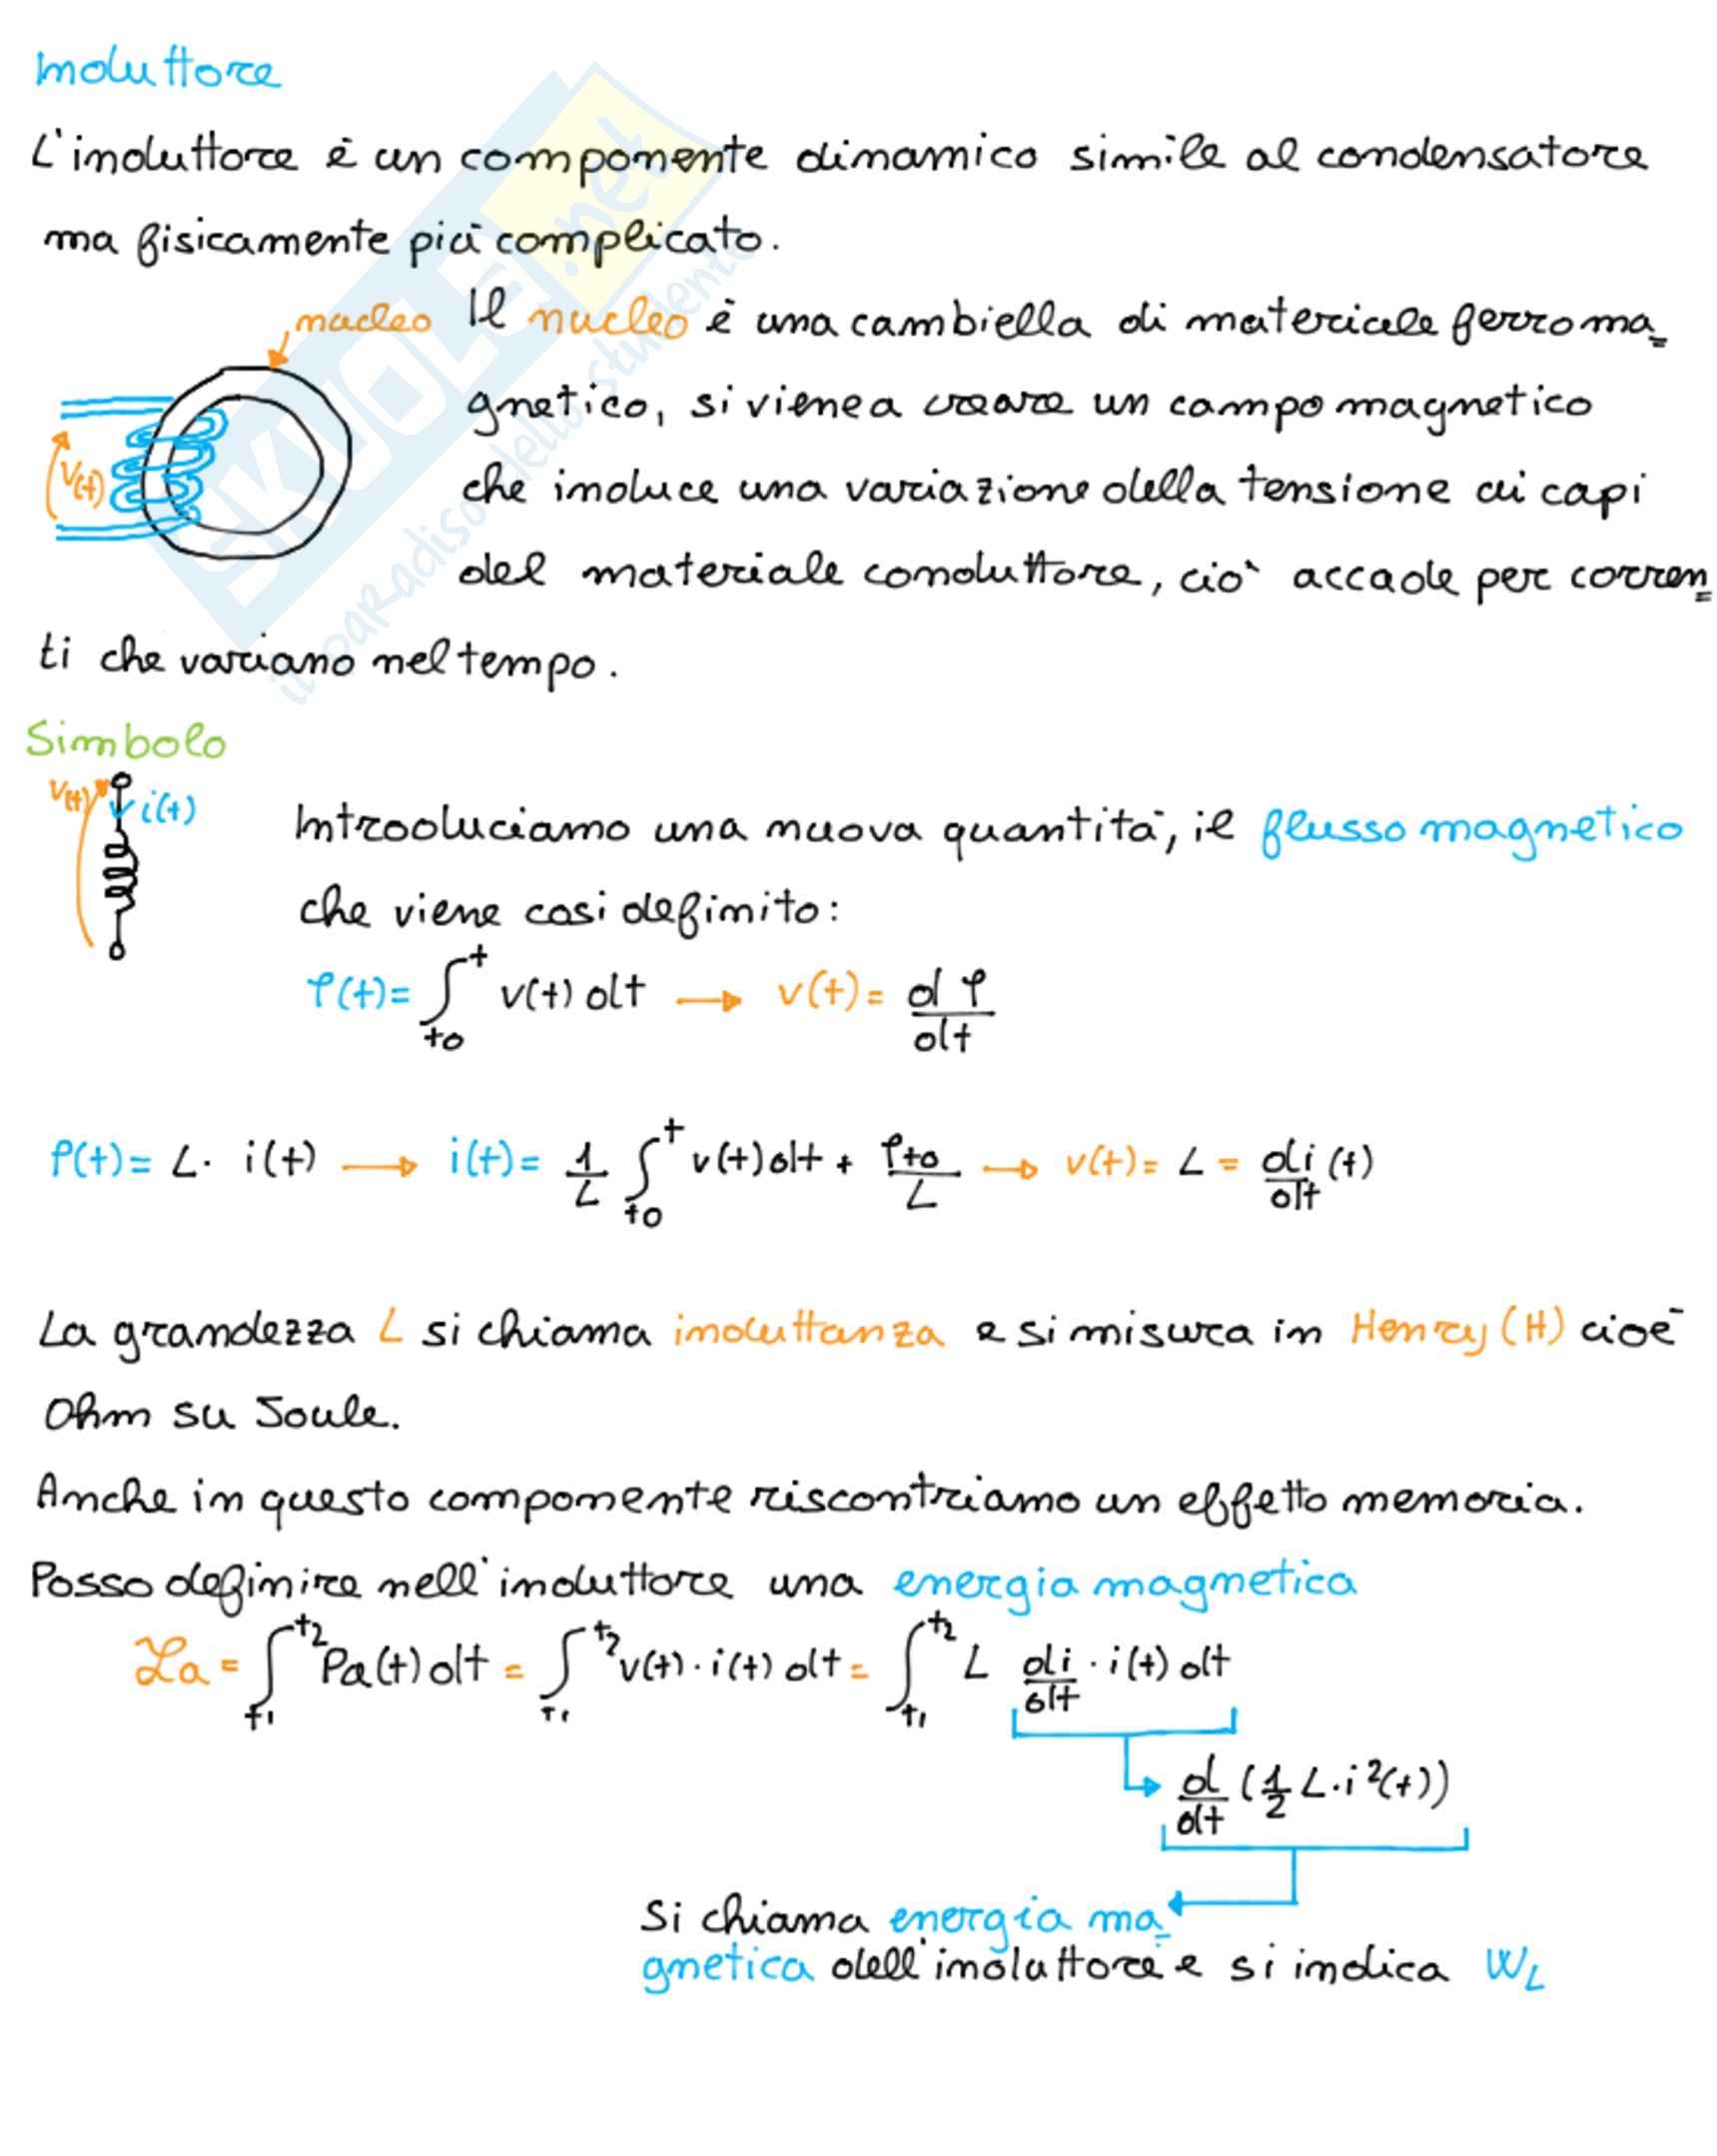 Induttore
L'induttore è un componente dinamico simile al condensatore
ma fisicamente più complicato.
nucleo
Il nucleo è una cambiella di materiale ferroma=
gnetico, si viene a creare un campo magnetico
che induce una variazione della tensione ai capi
del materiale conduttore, ciò accade per corren=
ti che variano nel tempo.
V(t)
Simbolo
V(t) i(t)
Introduciamo una nuova quantità, il flusso magnetico
che viene così definito:
φ(t) = ∫_{t0}^{t} v(t) dt → v(t) = dφ/dt
φ(t) = L· i(t) → i(t) = 1/L ∫_{t0}^{t} v(t) dt + φt0/L → v(t) = L = di/dt (t)
La grandezza L si chiama induttanza e si misura in Henry (H) cioè
Ohm su Joule.
Anche in questo componente riscontriamo un effetto memoria.
Posso definire nell'induttore una energia magnetica
La = ∫_{t1}^{t2} Pa(t) dt = ∫_{t1}^{t2} v(t)·i(t) dt = ∫_{t1}^{t2} L di/dt · i(t) dt
d/dt (1/2 L·i²(t))
Si chiama energia ma=
gnetica dell'induttore e si indica WL
SKUOLA.net
il paradiso dello studente